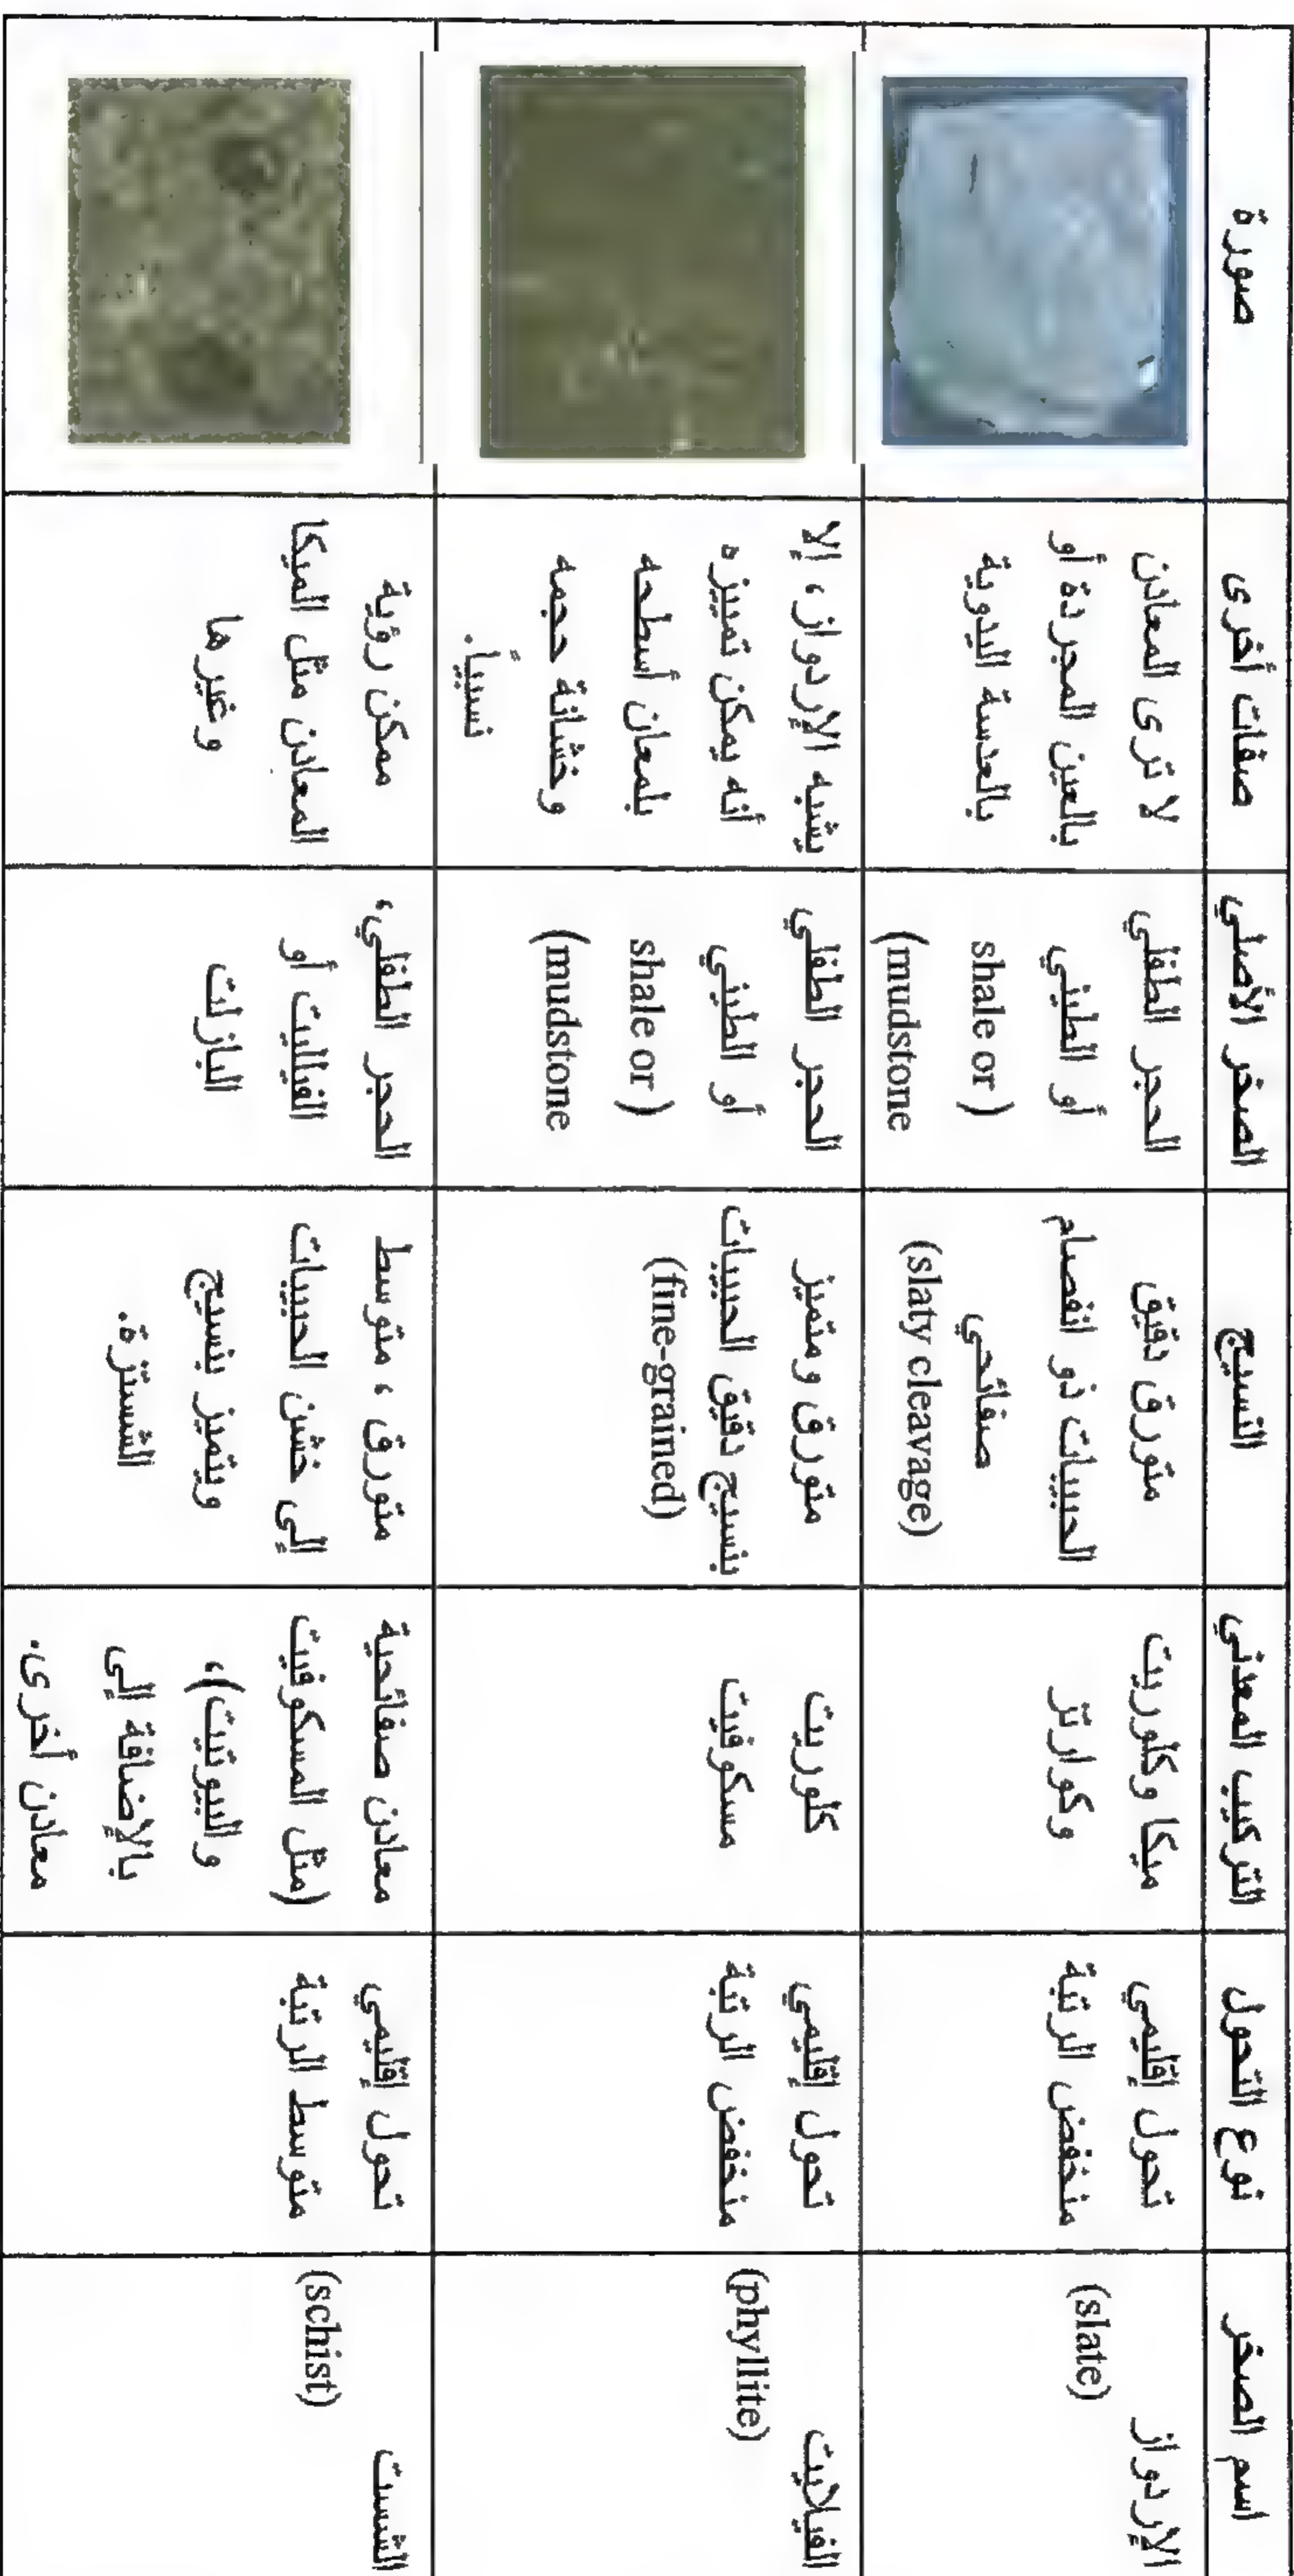 اسم الصخر
نوع التحول
التركيب المعدني
النسيج
الصخر الأصلي
صفات أخرى
صورة
الإردواز
(slate)
تحول إقليمي
منخفض الرتبة
ميكا وكلوريت
وكوارتز
متورق دقيق
الحبيبات ذو انفصام
صفائحي
(slaty cleavage)
الحجر الطفلي
أو الطيني
shale or )
(mudstone
لا ترى المعادن
بالعين المجردة أو
بالعدسة اليدوية
الفيلايت
(phyllite)
تحول إقليمي
منخفض الرتبة
كلوريت
مسكوفيت
متورق ومتميز
بنسيج دقيق الحبيبات
(fine-grained)
الحجر الطفلي
أو الطيني
shale or )
(mudstone
يشبه الإردواز، إلا
أنه يمكن تمييزه
بلمعان أسطحه
وخشانة حجمه
نسبياً.
الشست
(schist)
تحول إقليمي
متوسط الرتبة
معادن صفائحية
(مثل المسكوفيت
والبيوتيت)،
بالإضافة إلى
معادن أخرى.
متورق ، متوسط
إلى خشن الحبيبات
ويتميز بنسيج
الشستزة.
الحجر الطفلي،
الفيلليت أو
البازلت
ممكن رؤية
المعادن مثل الميكا
وغيرها